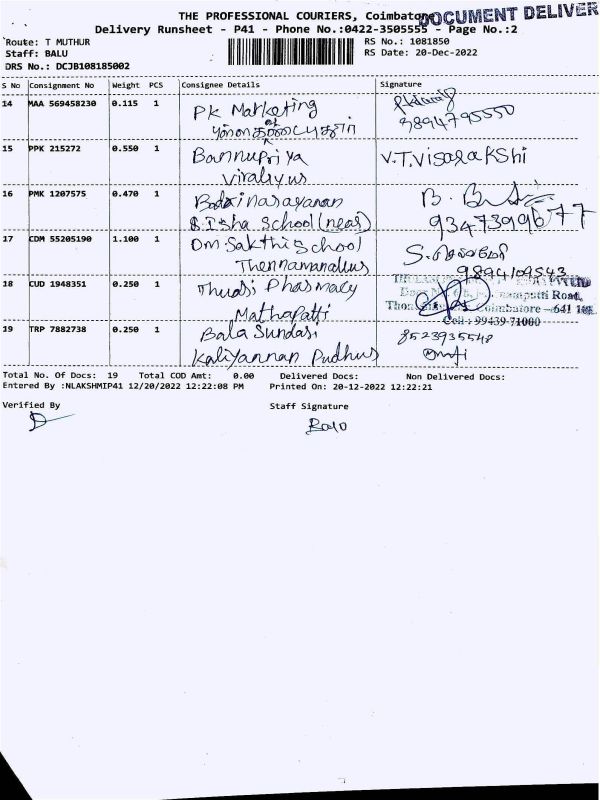 THE PROFESSIONAL COURIERS, Coimbatore
DOCUMENT DELIVER
Delivery Runsheet - P41 - Phone No.:0422-3505555 - Page No.:2
Route: T MUTHUR
RS No.: 1081850
Staff: BALU
RS Date: 20-Dec-2022
DRS No.: DCJB108185002
S No Consignment No Weight PCS Consignee Details Signature
14 MAA 569458230 0.115 1 PK Marketing
15 PPK 215272 0.550 1 Bannupriya V.T.Visalakshi
Viraliyur
16 PMK 1207575 0.470 1 Badrinarayanan
(near)
S.Isha School
17 CDM 55205190 1.100 1 Om Sakthi School
Thennamanallur 9894109543
18 CUD 1948351 0.250 1 Thulasi Pharmacy
Road,
Mathapatti Coimbatore - 641
Cell : 99439-71000
19 TRP 7882738 0.250 1 Bala Sundari 8523935548
Kaliyannan Pudhur
Total No. Of Docs: 19 Total COD Amt: 0.00 Delivered Docs: Non Delivered Docs:
Entered By :NLAKSHMIP41 12/20/2022 12:22:08 PM Printed On: 20-12-2022 12:22:21
Verified By Staff Signature